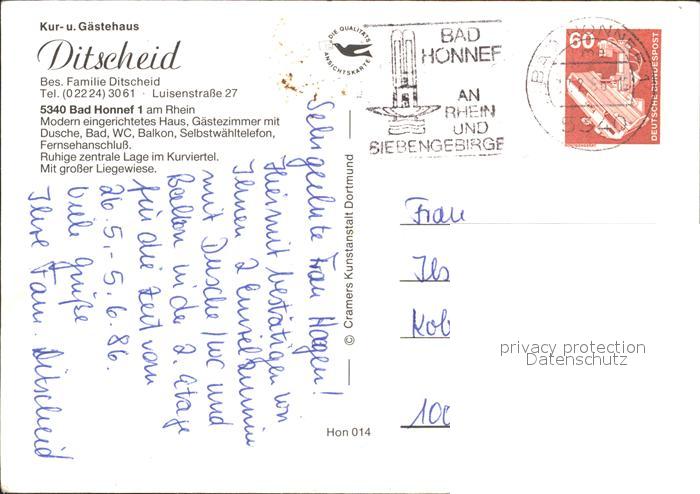 Kur- u. Gästehaus
Ditscheid
Bes. Familie Ditscheid
Tel. (0 22 24) 30 61 · Luisenstraße 27
5340 Bad Honnef 1 am Rhein
Modern eingerichtetes Haus, Gästezimmer mit
Dusche, Bad, WC, Balkon, Selbstwähltelefon,
Fernsehanschluß.
Ruhige zentrale Lage im Kurviertel.
Mit großer Liegewiese.
DIE QUALITÄTS
ANSICHTSKARTE
BAD
HONNEF
AN
RHEIN
UND
SIEBENGEBIRGE
BAD HONNEF 1
5340
60
DEUTSCHE BUNDESPOST
Sehr geehrte Frau Haagen!
Hiermit bestätigen wir
Ihnen 2 Einzelzimmer
mit Dusche/WC und
Balkon in der 2. Etage
für die Zeit vom
26.5.-5.6.86.
Viele Grüße
Ihre Fam. Ditscheid
© Cramers Kunstanstalt Dortmund
Hon 014
Frau
Ils
Kob
100
privacy protection
Datenschutz